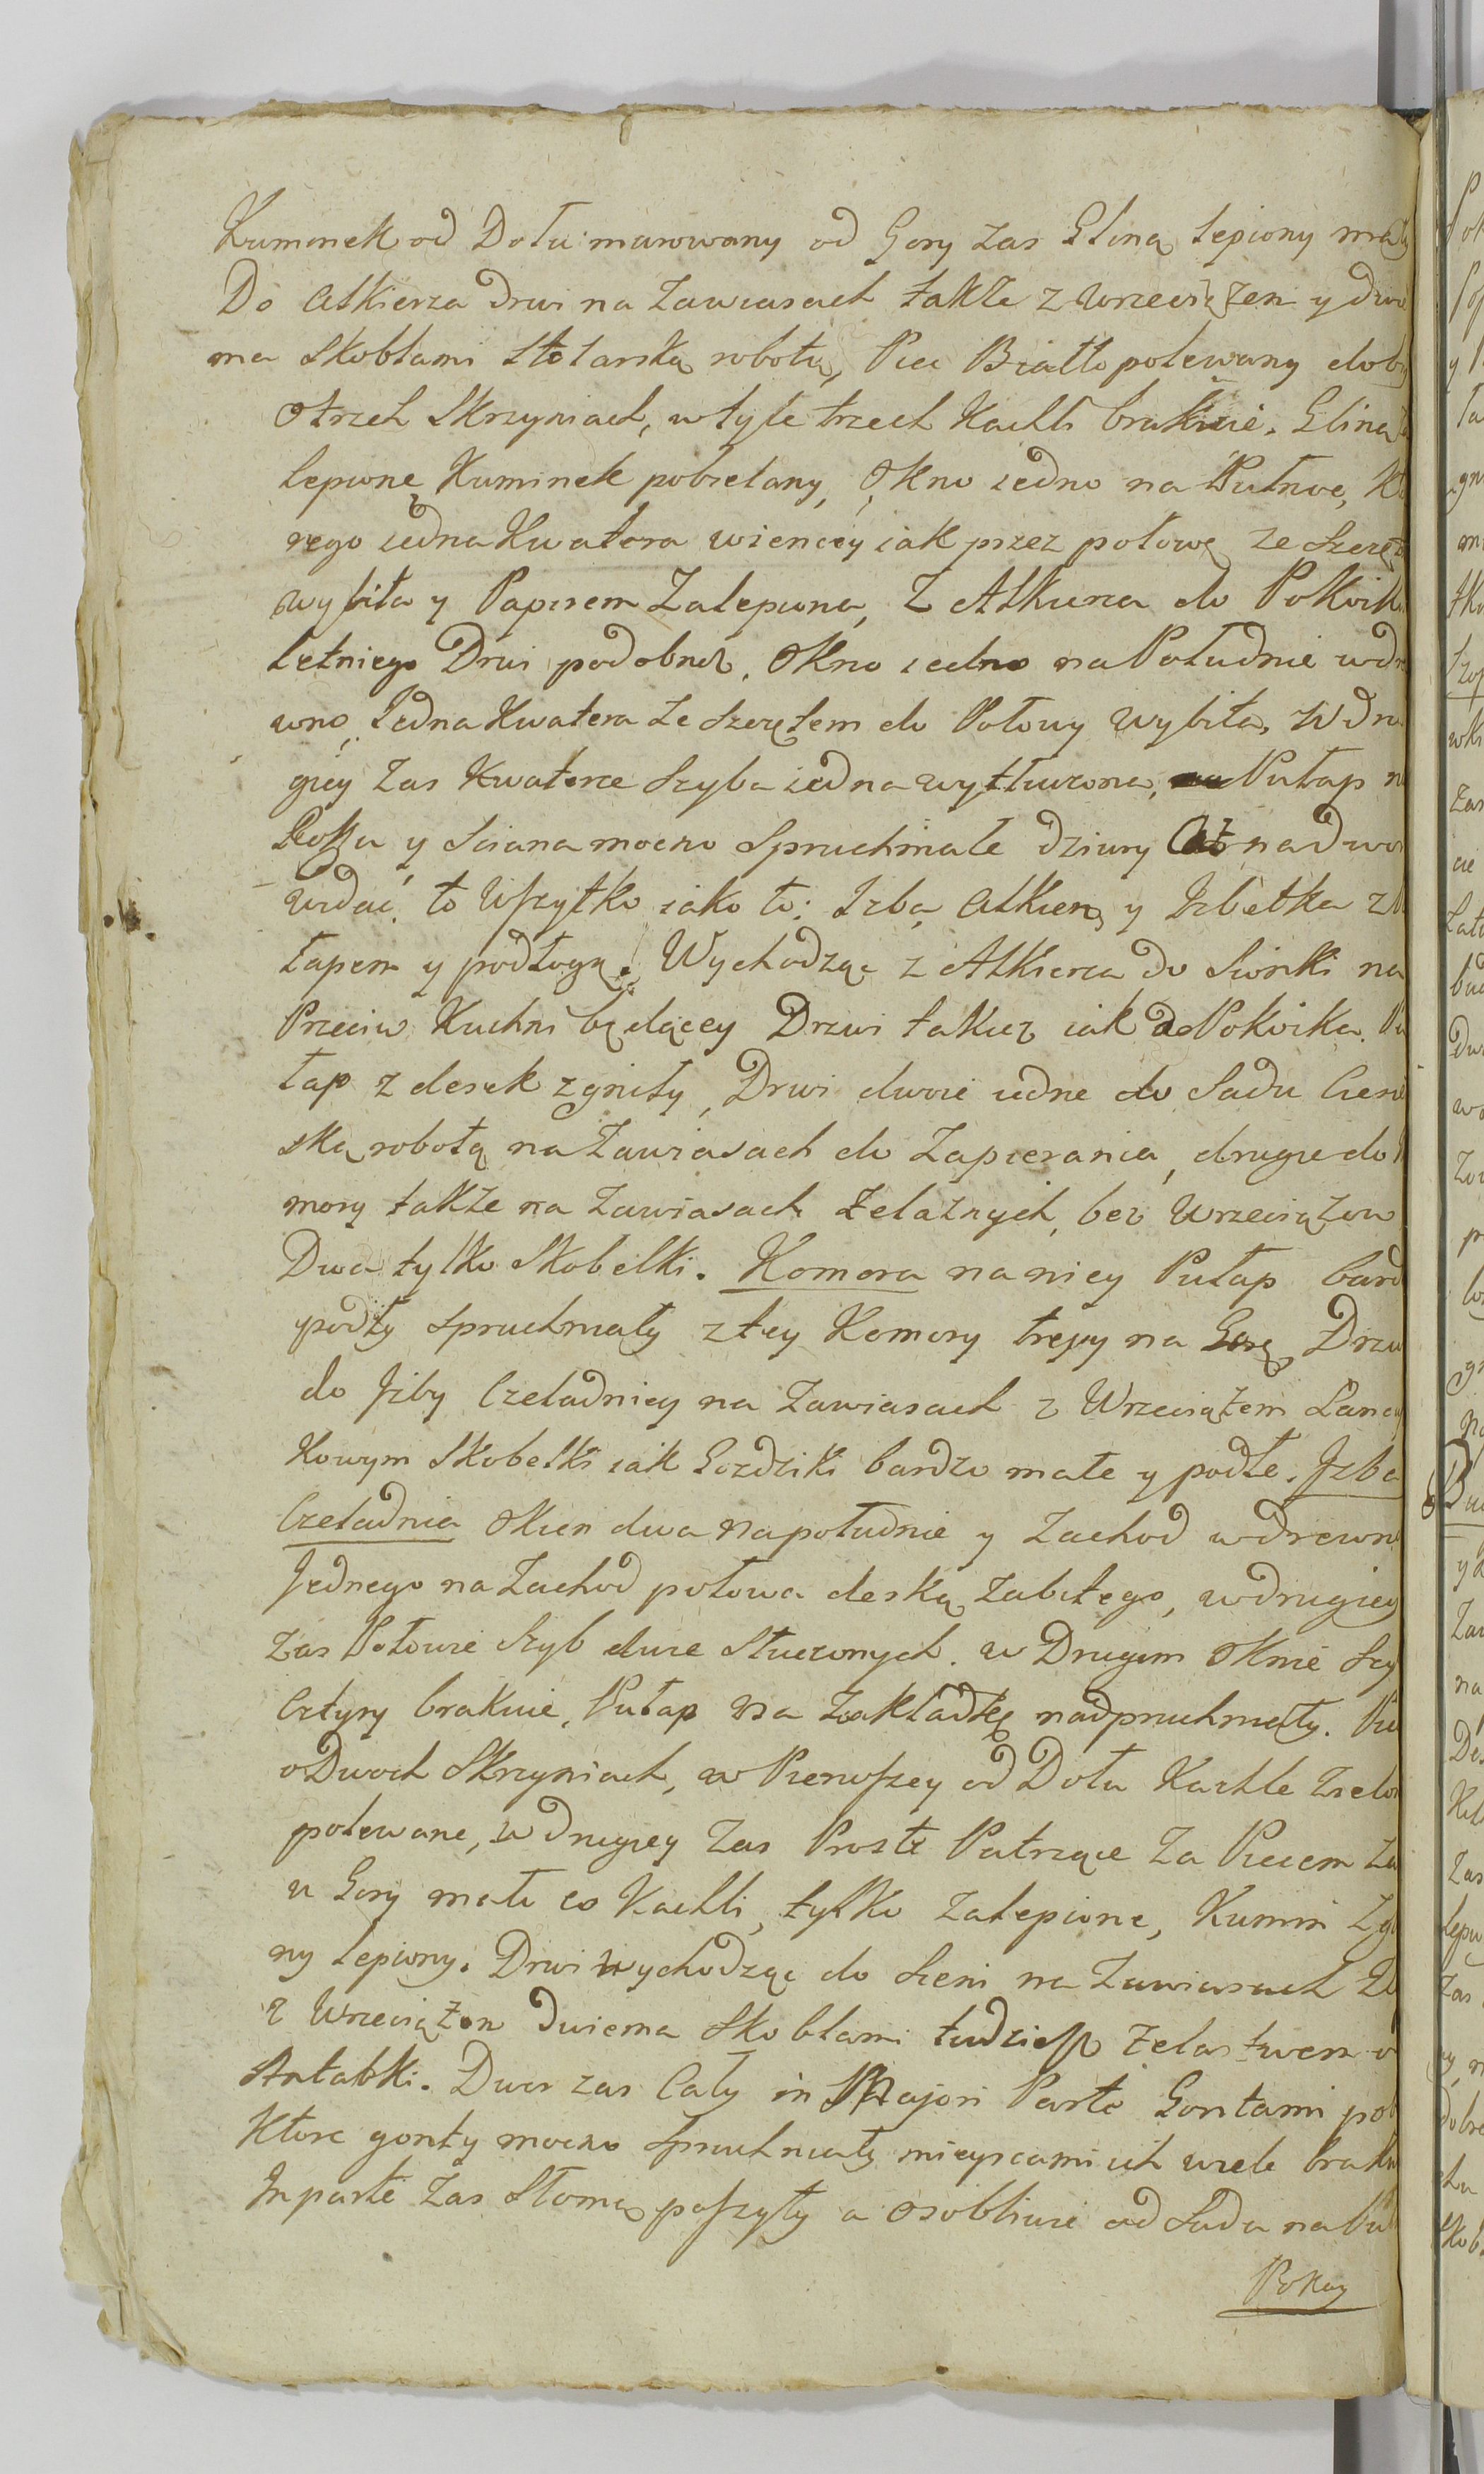 Kuminek od Dołu murowany od Gory zas Gliną lepiony mały
Do Alkierza Drwi na Zawiasach także z wrzeciążem y dwie
ma Skoblami Stolarską robotą, Piec Biało polewany dobry
O trzech Skrzyniach, w tyle trzech Kachli brakuie. Gliną
lepione Kuminek pobielany, Okno iedno na Pułnoc, Kto
rego iedna Kwatera wiencey iak przez połowę ze Szczę
wybita y Papirem Zalepiona, Z Alkierza do Pokoik
letniego Drwi podobneż. Okno iedno na Południe w dre
wno, Jedna Kwatera ze szczętem do Połowy wybita, W dru
giey zas Kwaterze Szyba iedna wytłuczona, Pułap
Boku y Sciana mocno Spruchniałe dziury Aż na dwor
widać. to Wszytko iako to: Izba, Alkierz, y Izbetka z
łapem y podłogą. Wychodząc z Alkierza do Sionki na
Przeciw Kuchni będącey Drzwi takież iak do Pokoika. Pu
łap z desek zgniły, Drwi dwoie iedne do Sadu Ciesiel
ską robotą na Zawiasach do Zapierania, drugie do
mory także na Zawiasach żelaznych, bez Wrzeciążow
Dwa tylko Skobelki. Komora na niey Pułap bard
podły Spruchniały z tey Komory trepy na Gorę, Drzwi
do Jzby Czeladniey na Zawiasach z Wrzeciążem Lancu
kowym Skobelki iak Gozdziki bardzo małe y podłe. Jzba
Czeladnia Okien dwa na południe y Zachod w drewno
Jednego na Zachod połowa deską Zabitego, w drugiey
zas Połowie Szyb dwie Stłuczonych. w Drugim Oknie Szy
Cztyry brakuie, Pułap na Zakładkę nadpruchniały. Pie
o Dwoch Skrzyniach, w Pierwszey od Dołu Kachle Zielo
polewane, w drugiey zas Proste Patrząc Za Piecem
u Gory mało co Kachli, tylko Zalepione, Kumin z gli
ny lepiony. Drwi wychodząc do Sieni na Zawiasach
z Wrzeciążem Dwiema Skoblami tudziesz żelastwem
Antabki. Dwor zas Cały in Majori Parte Gontami pob
Ktore gonty mocno Spruchniały mieyscami ich wiele braku
In parte zas Słomą poszyty a osobliwie od Sadu na Puł
Pokoy